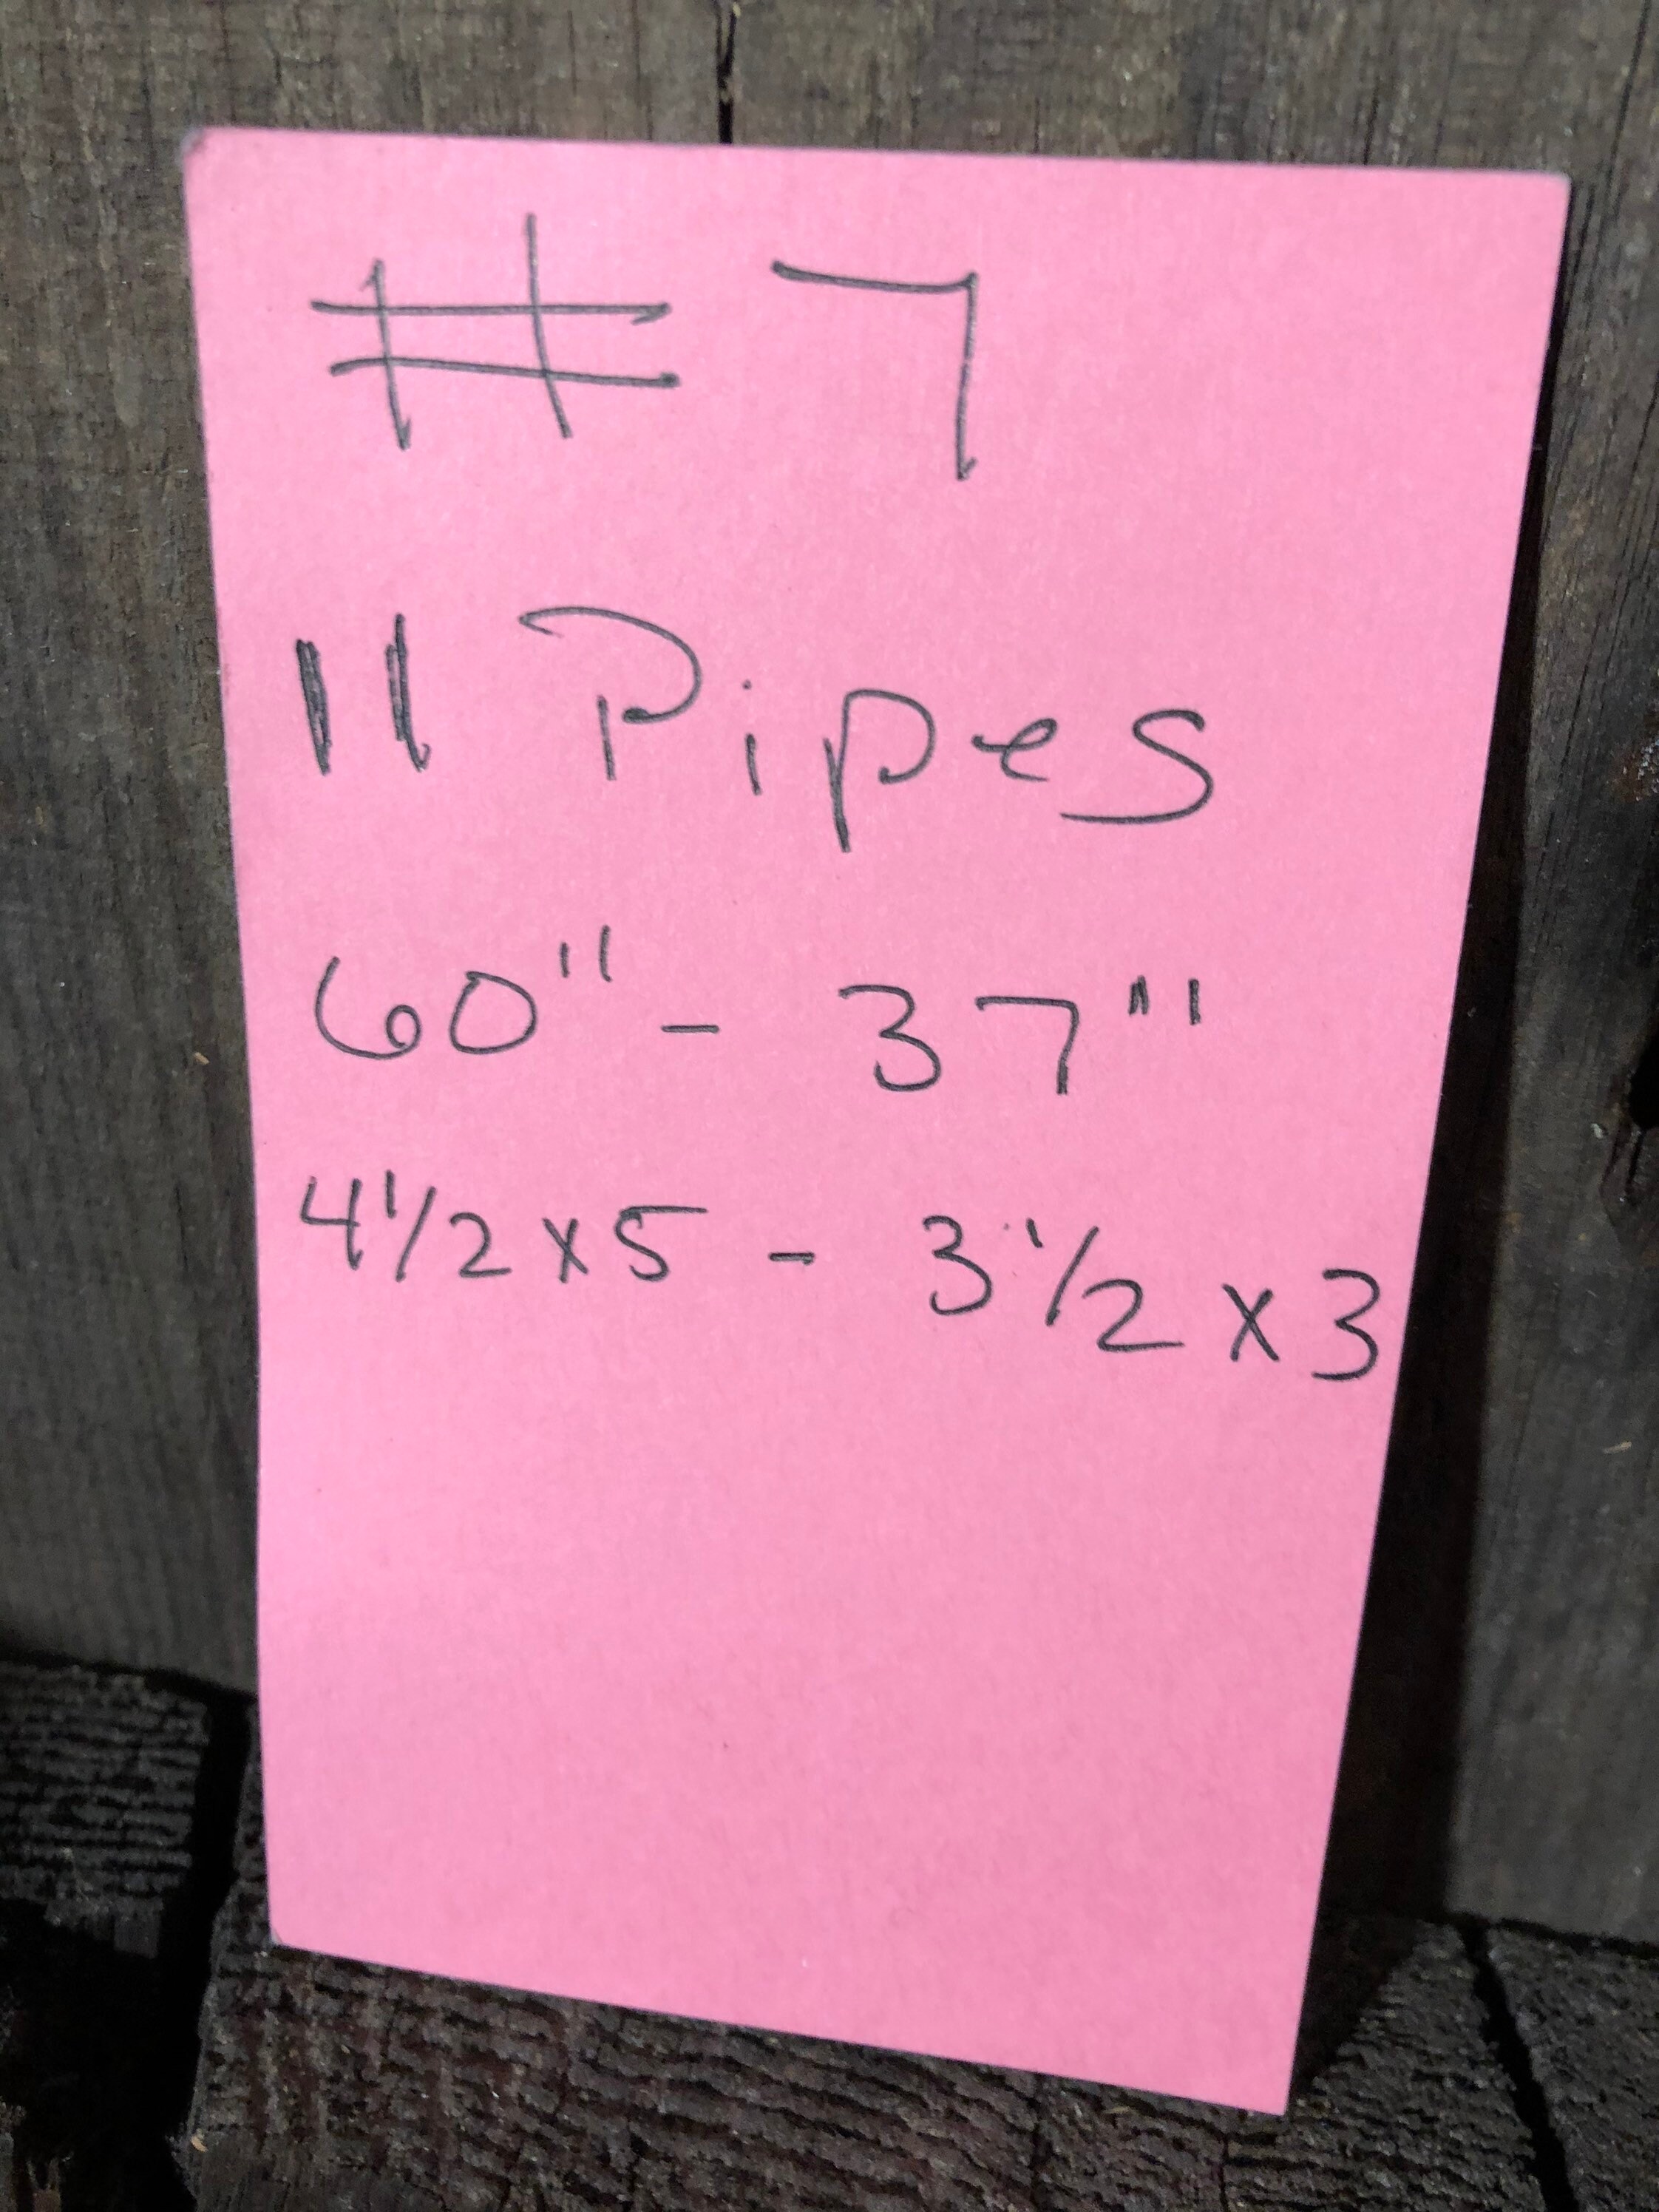 # 7
11 Pipes
60" - 37"
4 1/2 x 5 - 3 1/2 x 3